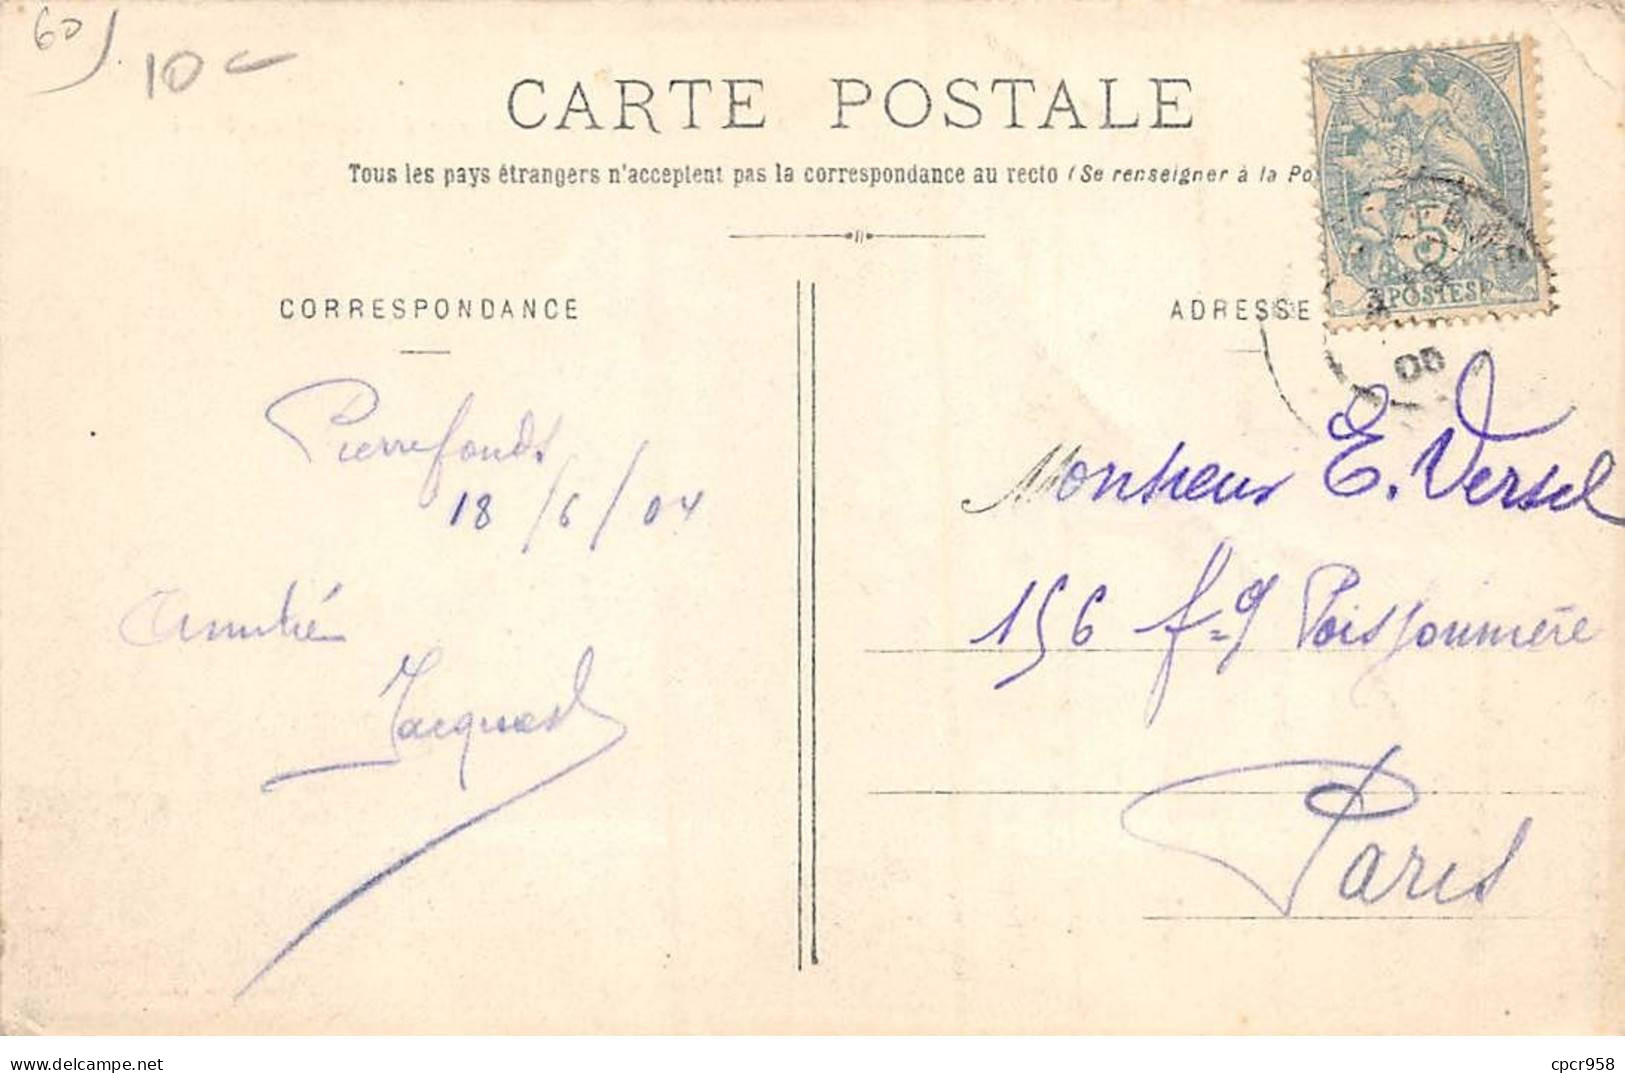 60
10
CARTE POSTALE
Tous les pays étrangers n'acceptent pas la correspondance au recto (Se renseigner à la Po
5
POSTES
CORRESPONDANCE
ADRESSE
Pierrefonds
18/6/04
Amitié
Monsieur E. Versel
156 fg Poissonnière
Paris
delcampe.net
cpcr958